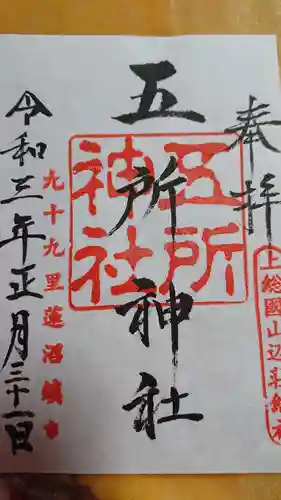 奉拝
上総國山辺荘総社
五所神社
五所神社
九十九里蓮沼鎮守
令和三年正月三十一日